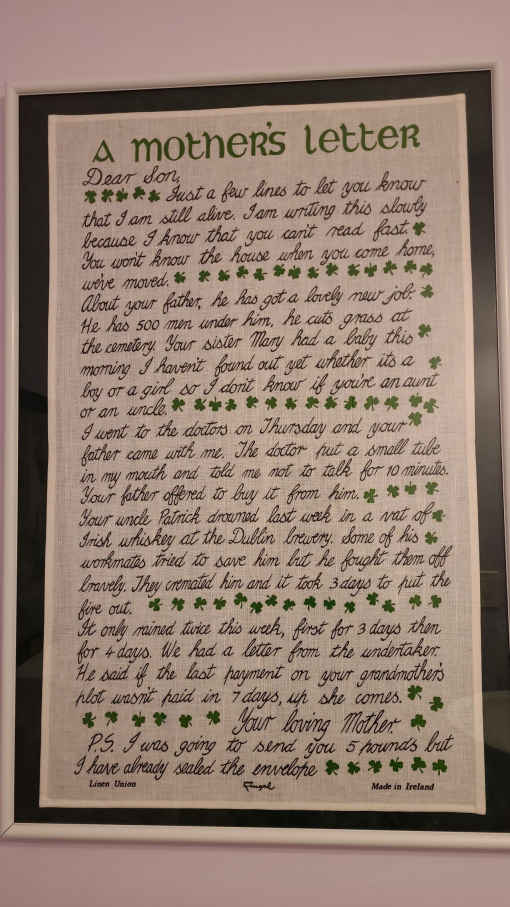 A MOTHER'S LETTER
Dear Son,
Just a few lines to let you know
that I am still alive. I am writing this slowly
because I know that you can't read fast.
You won't know the house when you come home,
we've moved.
About your father, he has got a lovely new job.
He has 500 men under him, he cuts grass at
the cemetery. Your sister Mary had a baby this
morning I haven't found out yet whether its a
boy or a girl so I don't know if you're an aunt
or an uncle.
I went to the doctors on Thursday and your
father came with me. The doctor put a small tube
in my mouth and told me not to talk for 10 minutes.
Your father offered to buy it from him.
Your uncle Patrick drowned last week in a vat of
Irish whiskey at the Dublin brewery. Some of his
workmates tried to save him but he fought them off
bravely. They cremated him and it took 3 days to put the
fire out.
It only rained twice this week, first for 3 days then
for 4 days. We had a letter from the undertaker.
He said if the last payment on your grandmother's
plot wasn't paid in 7 days, up she comes.
Your loving Mother.
P.S. I was going to send you 5 pounds but
I have already sealed the envelope
Linen Union
Made in Ireland